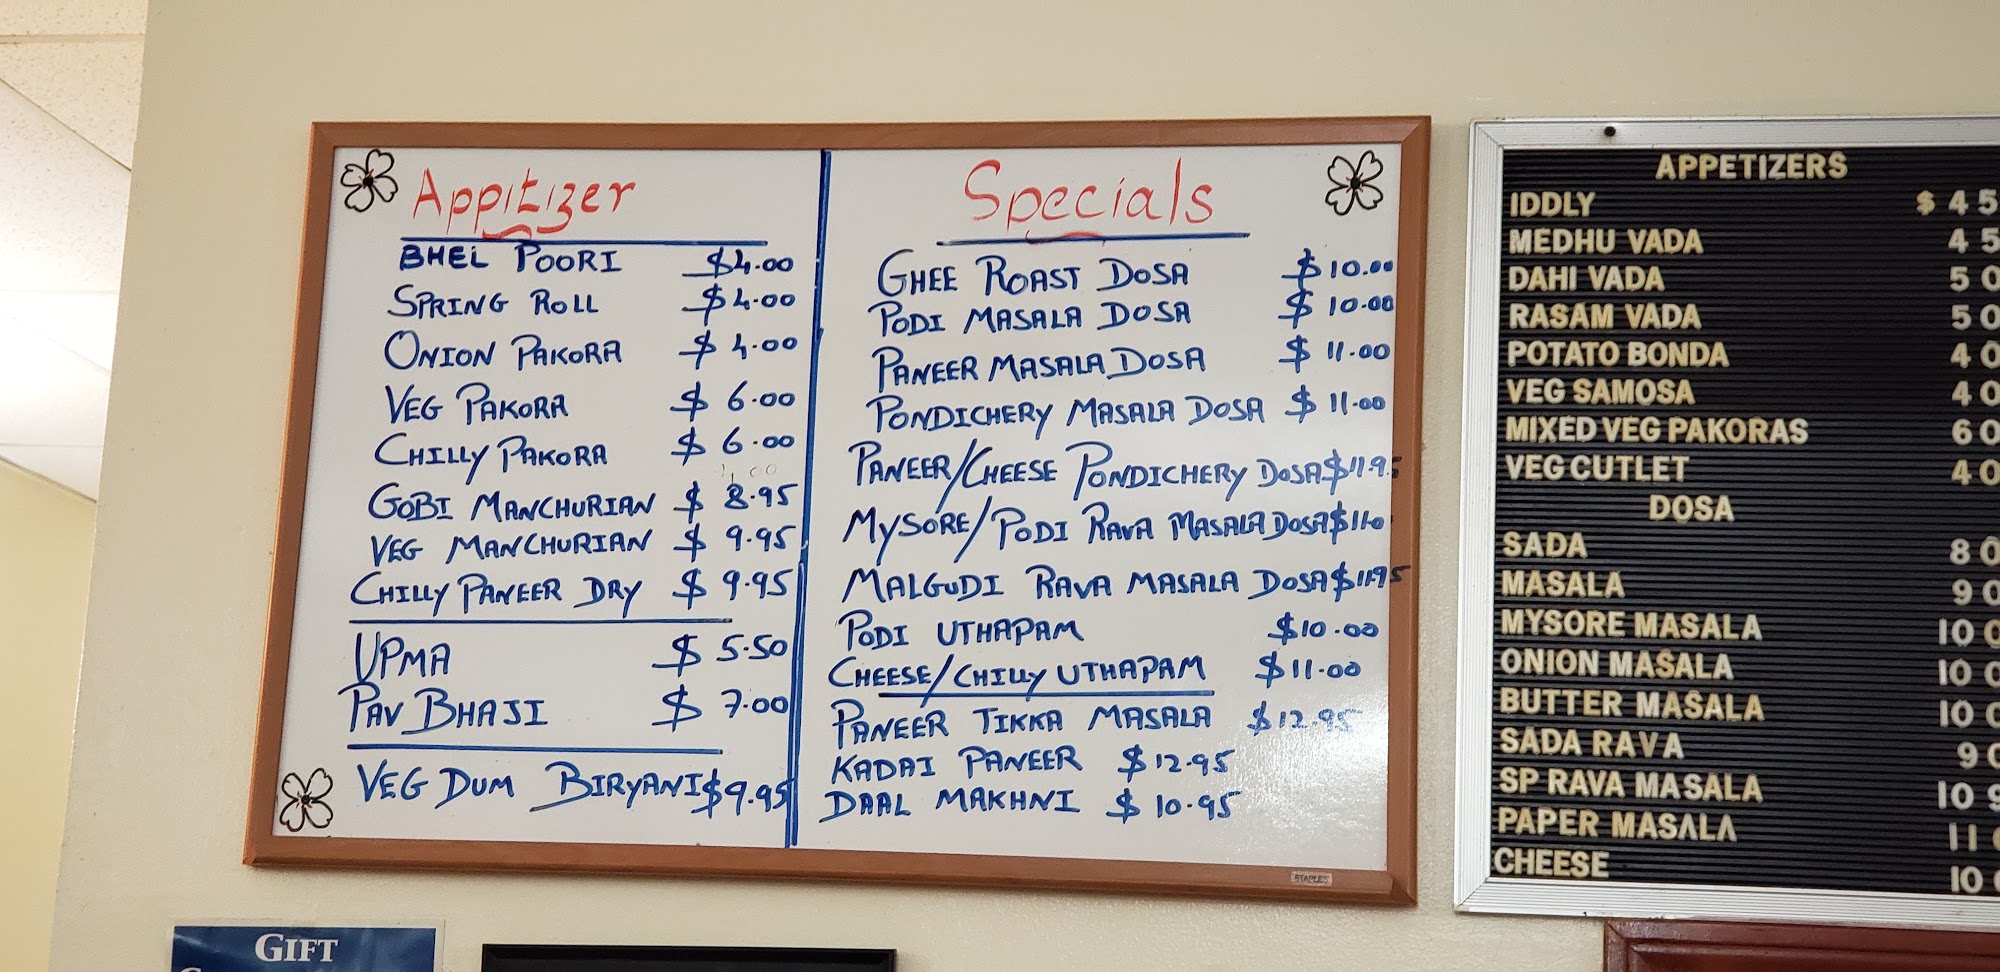 Appitizer
BHEL POORI $4.00
SPRING ROLL $4.00
ONION PAKORA $4.00
VEG PAKORA $6.00
CHILLY PAKORA $6.00
GOBI MANCHURIAN $8.95
VEG MANCHURIAN $9.95
CHILLY PANEER DRY $9.95
UPMA $5.50
PAV BHAJI $7.00
VEG DUM BIRYANI $9.95
Specials
GHEE ROAST DOSA $10.00
PODI MASALA DOSA $10.00
PANEER MASALA DOSA $11.00
PONDICHERY MASALA DOSA $11.00
PANEER/CHEESE PONDICHERY DOSA $11.95
MYSORE/PODI RAVA MASALA DOSA $11.0
MALGUDI RAVA MASALA DOSA $11.95
PODI UTHAPAM $10.00
CHEESE/CHILLY UTHAPAM $11.00
PANEER TIKKA MASALA $12.95
KADAI PANEER $12.95
DAAL MAKHNI $10.95
STAPLES
APPETIZERS
IDDLY $ 4 5
MEDHU VADA 4 5
DAHI VADA 5 0
RASAM VADA 5 0
POTATO BONDA 4 0
VEG SAMOSA 4 0
MIXED VEG PAKORAS 6 0
VEG CUTLET 4 0
DOSA
SADA 8 0
MASALA 9 0
MYSORE MASALA 10 0
ONION MASALA 10 0
BUTTER MASALA 10 0
SADA RAVA 9 0
SP RAVA MASALA 10 9
PAPER MASALA 11
CHEESE 10
GIFT